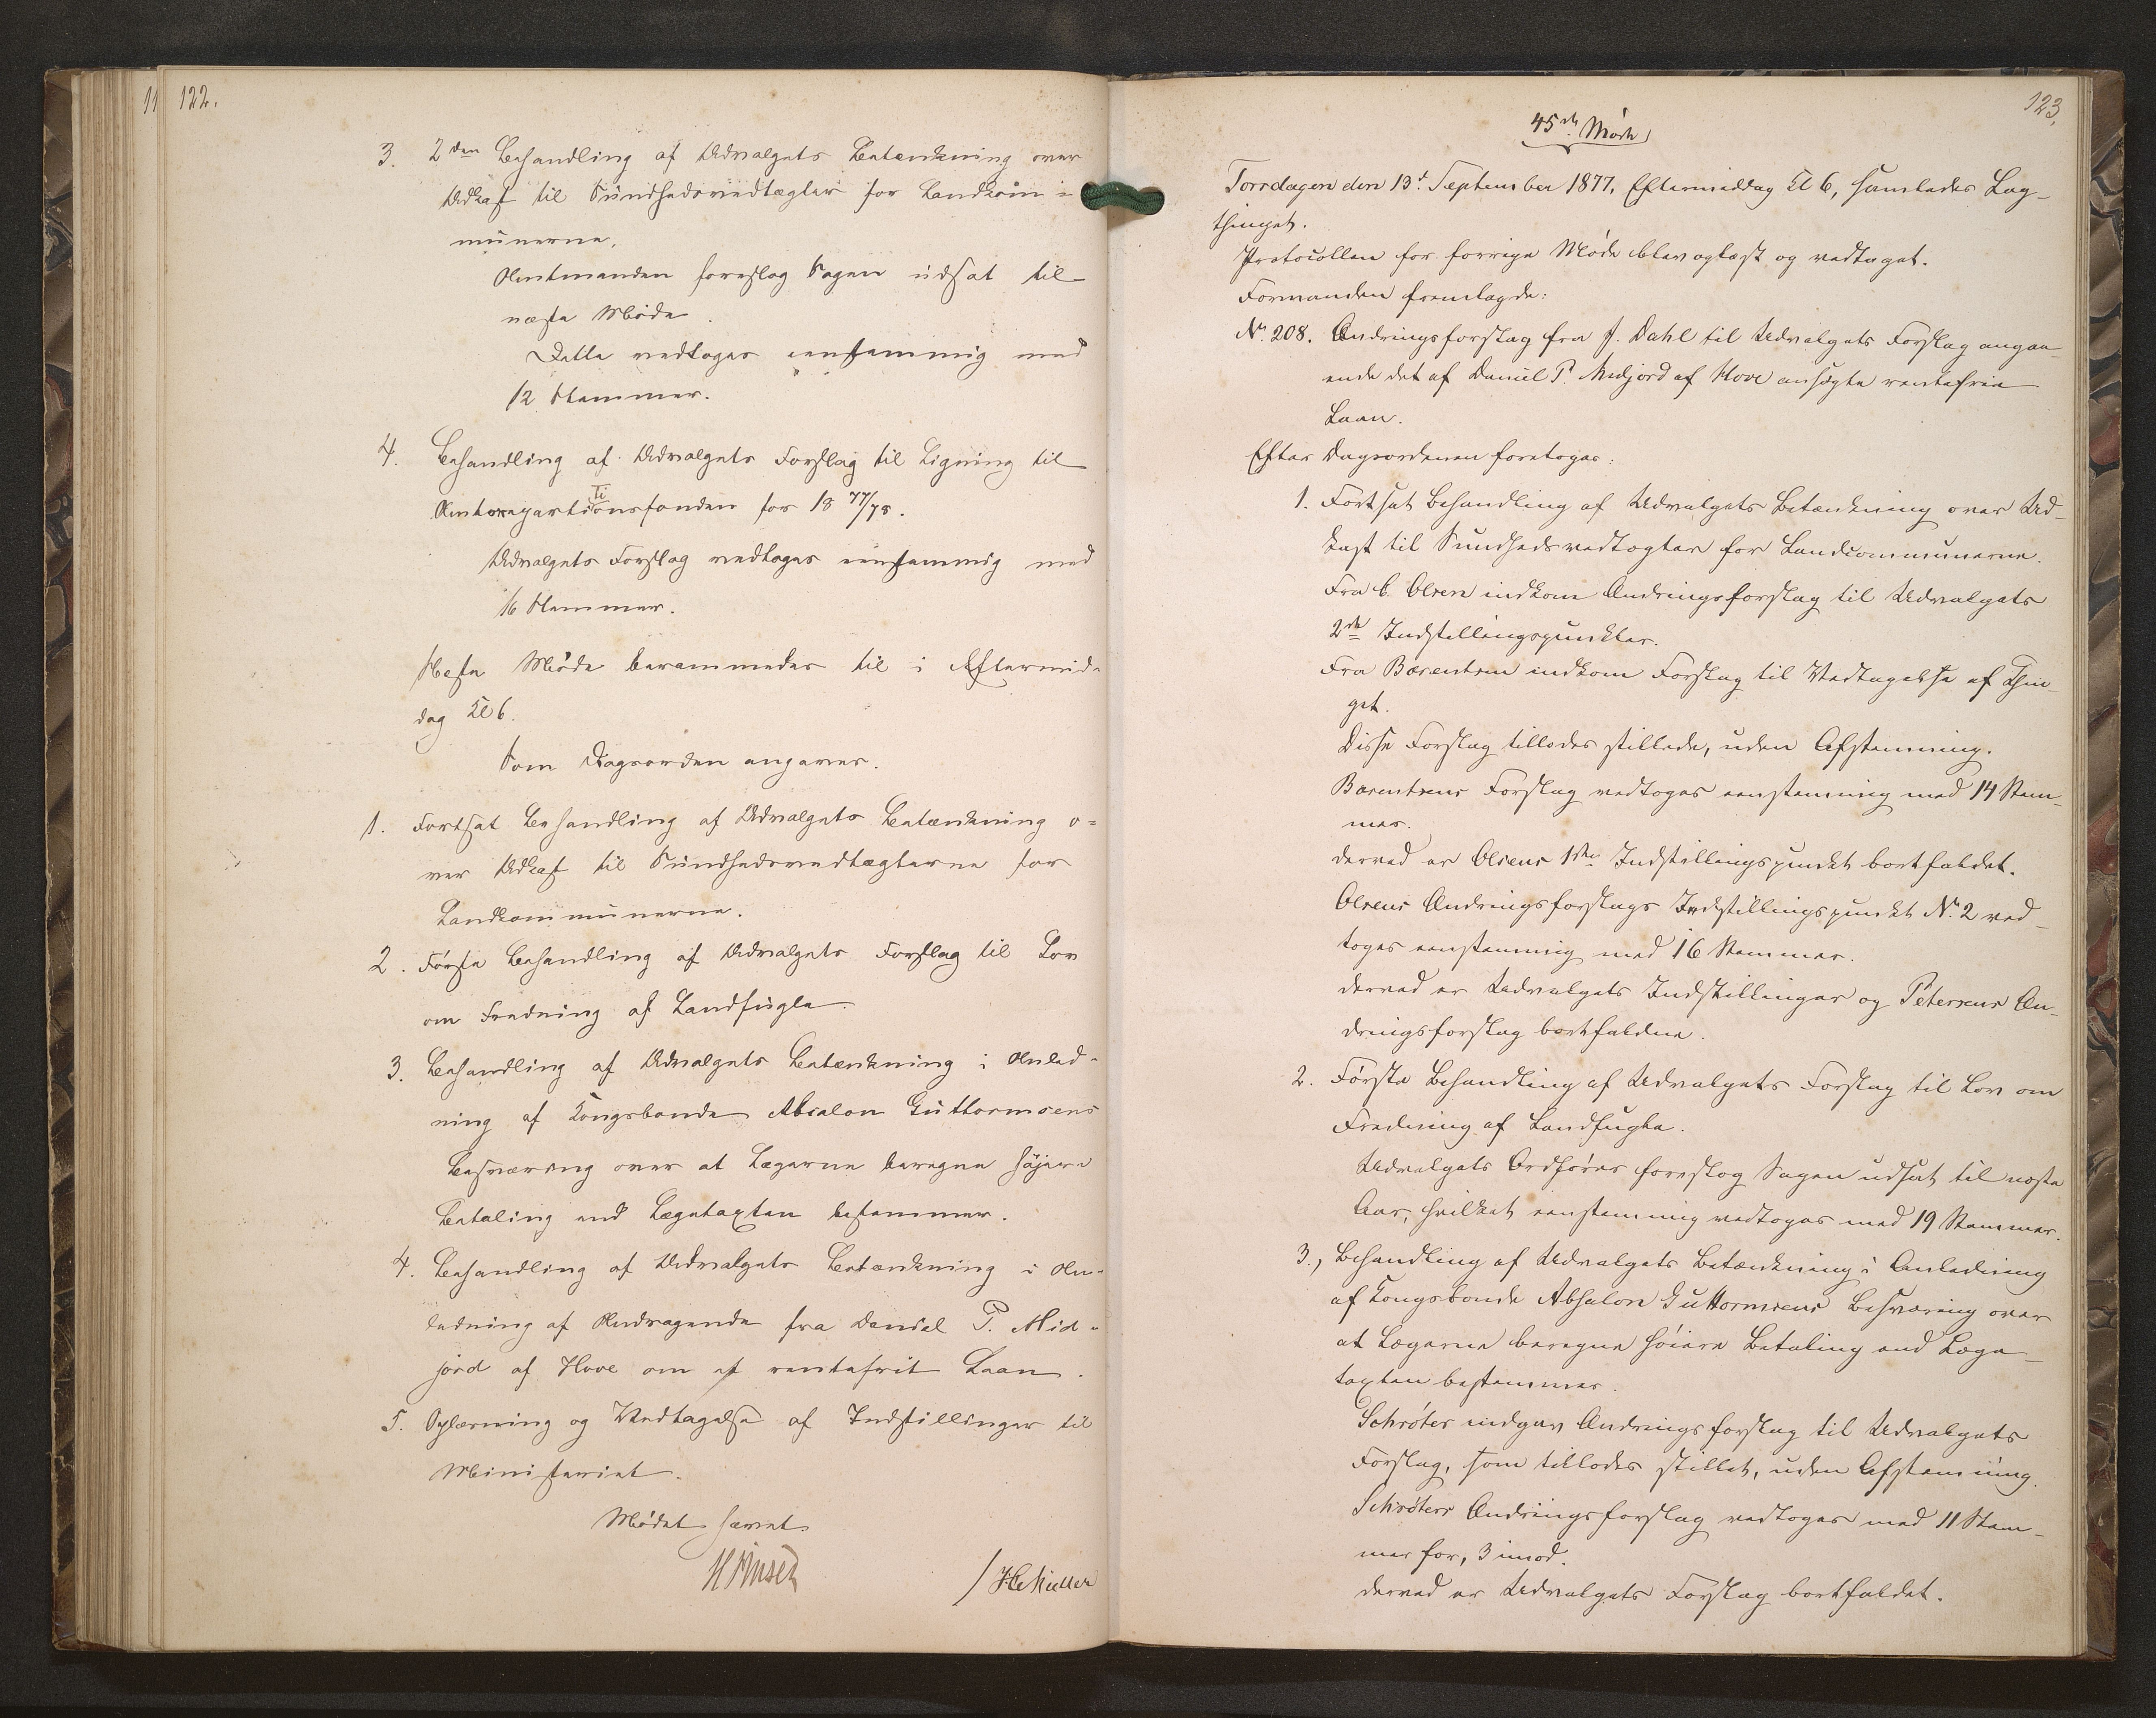 11 122.
3. 2den Behandling af Udvalgets Betænkning over
Udkast til Sundhedsvedtægter for Landkom¬
munerne.
Amtmanden foreslog Sagen udsat til
næste Møde.
Dette vedtoges eenstemmig med
12 Stemmer.
4. Behandling af Udvalgets Forslag til Ligning til
Amtsrepartitionsfonden for 18 77/78.
Udvalgets Forslag vedtoges eenstemmig med
16 Stemmer.
Næste Møde berammedes til i Eftermid-
dag Kl 6.
Som Dagsorden angaves.
1. Fortsat Behandling af Udvalgets Betænkning o=
ver Udkast til Sundhedsvedtægterne for
Landkommunerne.
2. Første Behandling af Udvalgets Forslag til Lov
om Fredning af Landfugle.
3. Behandling af Udvalgets Betænkning i Anled-
ning af Kongsbonde Absalon Guttormsens
Besværing over at Lægerne beregne højere
Betaling end Lægetaxten bestemmer.
4. Behandling af Udvalgets Betænkning i An-
ledning af Andragende fra Daniel P. Mid-
jord af Hove om et rentefrit Laan.
5. Oplæsning og Vedtagelse af Indstillinger til
Ministeriet.
Mødet hævet.
/ H C Müller
123.
45de Møde
Torsdagen den 13d September 1877, Eftermiddag Kl 6, samledes Lag-
thinget.
Protocollen for forrige Møde blev oplæst og vedtaget.
Formanden fremlagde:
No 208. Ændringsforslag fra J. Dahl til Udvalgets Forslag angaa-
ende det af Daniel P. Midjord af Hove ansøgte rentefrie
Laan.
Efter Dagsordenen foretoges:
1. Fortsat Behandling af Udvalgets Betænkning over Ud-
kast til Sundhedsvedtægter for Landcommunerne.
Fra C. Olsen indkom Ændringsforslag til Udvalgets
2de Indstillingspunkter.
Fra Bærentsen indkom Forslag til Vedtagelse af Thin-
get.
Disse Forslag tillodes stillede, uden Afstemning.
Bærentsens Forslag vedtoges eenstemmig med 14 Stem-
mer.
derved er Olsens 1ste Indstillingspunkt bortfaldet.
Olsens Ændringsforslags Indstillingspunkt No 2 ved-
toges eenstemmig med 16 Stemmer.
derved er Udvalgets Indstillinger og Petersens Æn-
dringsforslag bortfaldne.
2. Første Behandling af Udvalgets Forslag til Lov om
Fredning af Landfugle.
Udvalgets Ordfører foreslog Sagen udsat til næste
Aar, hvilket eenstemmig vedtoges med 19 Stemmer.
3., Behandling af Udvalgets Betænkning i Anledning
af Kongsbonde Absalon Guttormsens Besværing over
at Lægerne beregne høiere Betaling end Læge-
taxten bestemmer.
Schrøter indgav Ændringsforslag til Udvalgets
Forslag, som tillodes stillet, uden Afstemning.
Schrøters Ændringsforslag vedtoges med 11 Stem-
mer for, 3 imod.
derved er Udvalgets Forslag bortfaldet.